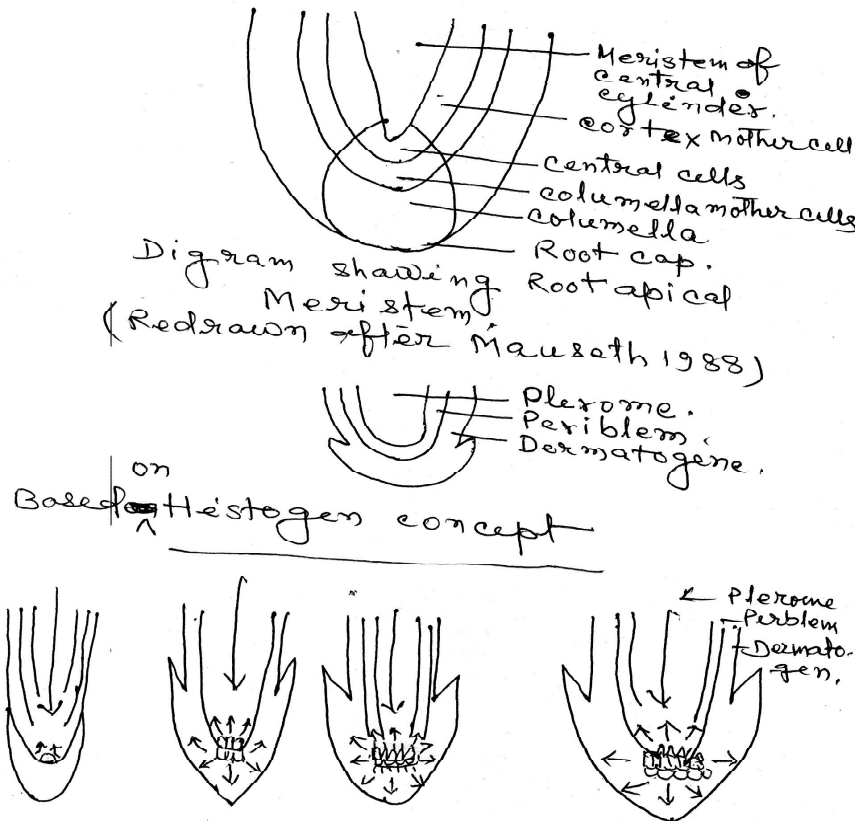 Meristem of
central
cylinder.
cortex mother cell
central cells
columella mother cells
columella
Root cap.
Digram shawing Root apical
Meristem
(Redrawn after Mauseth 1988)
Plerome.
Periblem.
Dermatogene.
on
Based Histogen concept
Plerome
Perblem
Dermato-
gen.